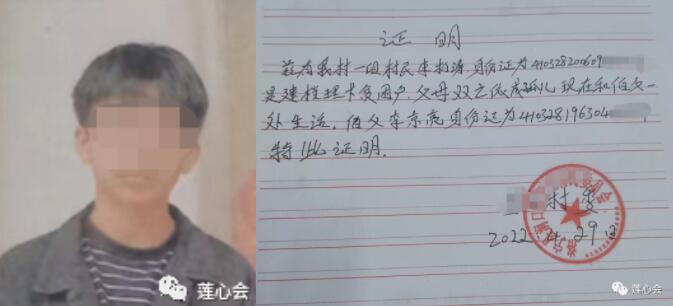 莲心会
证 明
兹有我村一组村民李 身份证为410328200609
是建档理卡贫困户,父母双亡 成孤儿.现在和伯父一
处生活,伯父李东亮身份证为410328196304
特此证明.
村委
2022.4.29日
莲心会